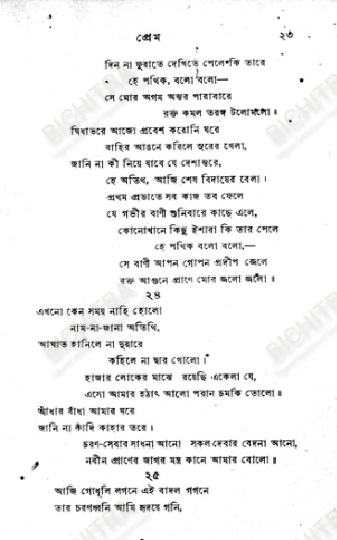 প্রেম ২৩
দিন না ফুরাতে দেখিতে পেলে কি তারে
হে পথিক, বলো বলো—
সে মোর অগম অন্তর পারাবারে
রক্ত কমল তরঙ্গ টলোমলো।
দ্বিধাভরে আজো প্রবেশ করোনি ঘরে
বাহির আঙনে করিলে সুরের খেলা,
জানি না কী নিয়ে যাবে যে দেশান্তরে,
হে অতিথি, আজি শেষ বিদায়ের বেলা।
প্রথম প্রভাতে সব কাজ তব ফেলে
যে গভীর বাণী শুনিবারে কাছে এলে,
কোনোখানে কিছু ইশারা কি তার পেলে
হে পথিক বলো বলো,—
সে বাণী আপন গোপন প্রদীপ জ্বেলে
রক্ত আগুনে প্রাণে মোর জ্বলো জ্বলো।
২৪
এখনো কেন সময় নাহি হোলো
নাম-না-জানা অতিথি,
আঘাত হানিলে না দুয়ারে
কহিলে না দ্বার খোলো।
হাজার লোকের মাঝে রয়েছি একেলা যে,
এসো আমার হঠাৎ আলো পরান চমকি তোলো।
আঁধার বাঁধা আমার ঘরে
জানি না কাঁদি কাহার তরে।
চরণ-সেবার সাধনা আনো সকল দেবার বেদনা আনো,
নবীন প্রাণের জাগর মন্ত্র কানে আমার বোলো।
২৫
আজি গোধূলি লগনে এই বাদল গগনে
তার চরণধ্বনি আমি হৃদয়ে গনি,
BICHITRA